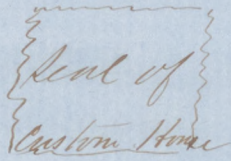 Seal of
Custom House